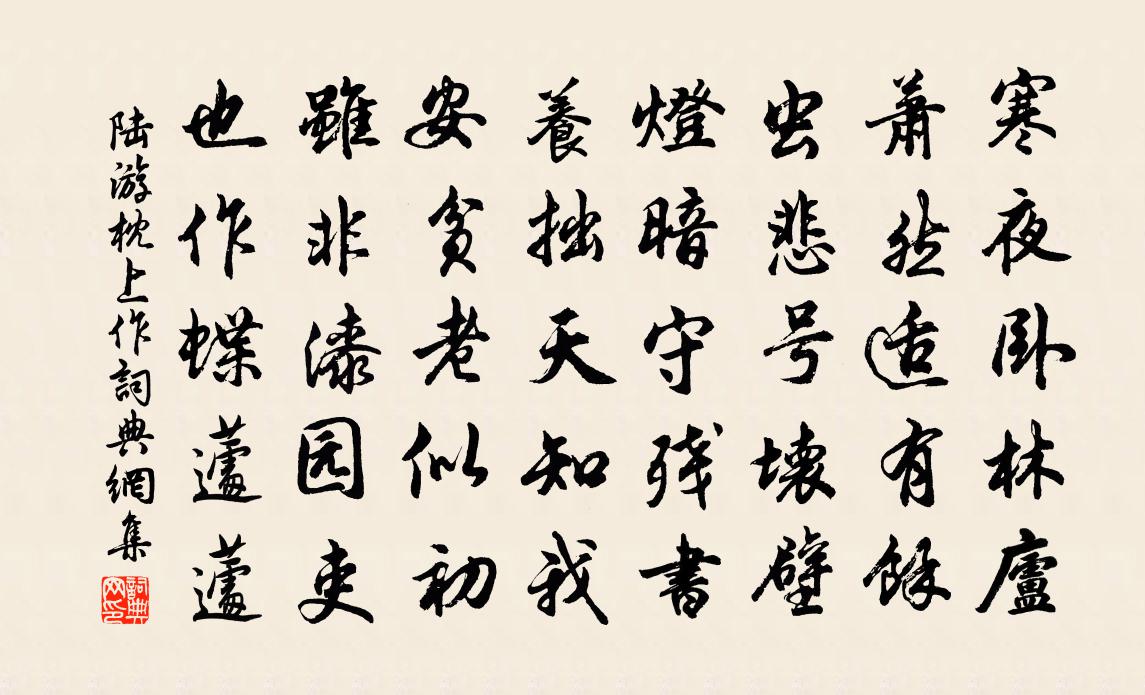 寒夜卧林廬
萧然适有餘
虫悲号壊壁
燈暗守残書
養拙天知我
安贫老似初
雖非漆园吏
也作蝶蘧蘧
陆游枕上作詞典網集
詞典网印